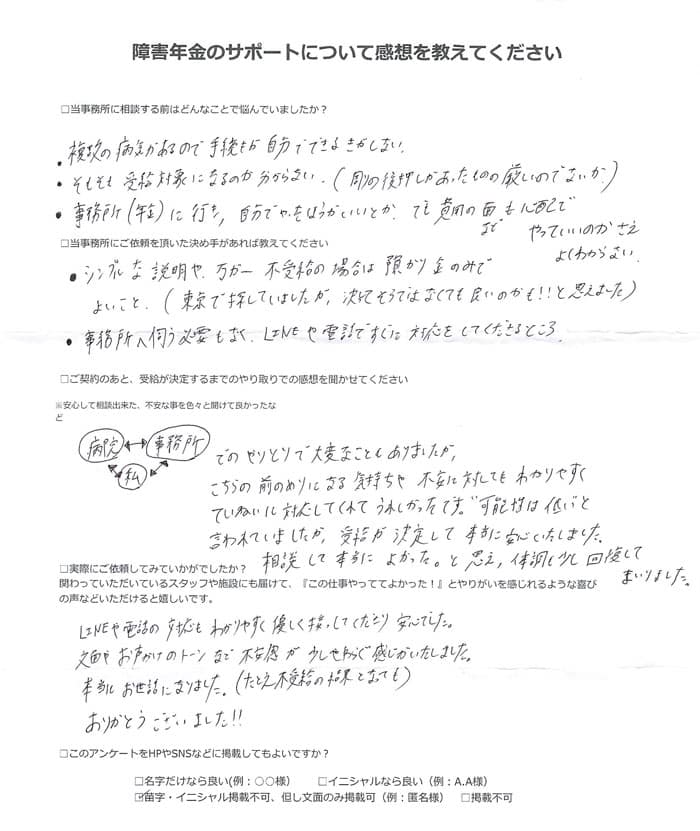 障害年金のサポートについて感想を教えてください
□当事務所に相談する前はどんなことで悩んでいましたか？
・複数の病気があるので手続きが自分でできるきがしない.
・そもそも 受給対象になるのか分からない. ( の後押しがあったものの厳しいのでないか)
・事務所(年金)に行き, 自分でやったほうがいいとか. でも費用の面も心配で
など. やっていいのかさえ
よくわからない.
□当事務所にご依頼を頂いた決め手があれば教えてください
・シンプルな説明や. 万が一 不受給の場合は預かり金のみで
よいこと. (東京で探していましたが, 決してそうではなくても良いのかも!!と思えました)
・事務所へ伺う必要もなく. LINEや電話ですぐに対応をしてくださるところ.
□ご契約のあと、受給が決定するまでのやり取りでの感想を聞かせてください
※安心して相談出来た、不安な事を色々と聞けて良かったな
ど
病院 ↔ 事務所
私
でのやりとりで大変なこともありましたが,
こちらの前のめりになる気持ちや 不安に対してもわかりやすく
ていねいに対応してくれてうれしかったです。"可能性は低い"と
言われていましたが, 受給が決定して本当に安心いたしました.
相談して本当によかった。と思え, 体調も少し回復して
まいりました。
□実際にご依頼してみていかがでしたか？
関わっていただいているスタッフや施設にも届けて、『この仕事やっててよかった！』とやりがいを感じれるような喜び
の声などいただけると嬉しいです。
LINEや電話の対応もわかりやすく優しく接してくださり 安心でした。
文面やお声かけのトーンなど不安感が少しやわらぐ感じがいたしました。
本当にお世話になりました。(たとえ不受給の結果となっても)
ありがとうございました!!
□このアンケートをHPやSNSなどに掲載してもよいですか？
□名字だけなら良い(例：○○様) □イニシャルなら良い（例：A.A様）
☑苗字・イニシャル掲載不可、但し文面のみ掲載可（例：匿名様） □掲載不可